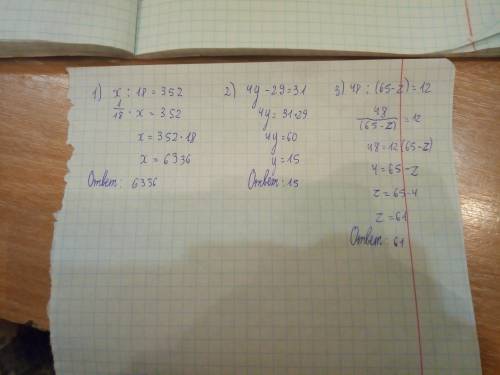 1) x : 18 = 352
1/18 · x = 352
x = 352 · 18
x = 6336
Ответ: 6336
2) 4y - 29 = 31
4y = 31+29
4y = 60
y = 15
Ответ: 15
3) 48 : (65-z) = 12
48/(65-z) = 12
48 = 12(65-z)
4 = 65-z
z = 65-4
z = 61
Ответ: 61